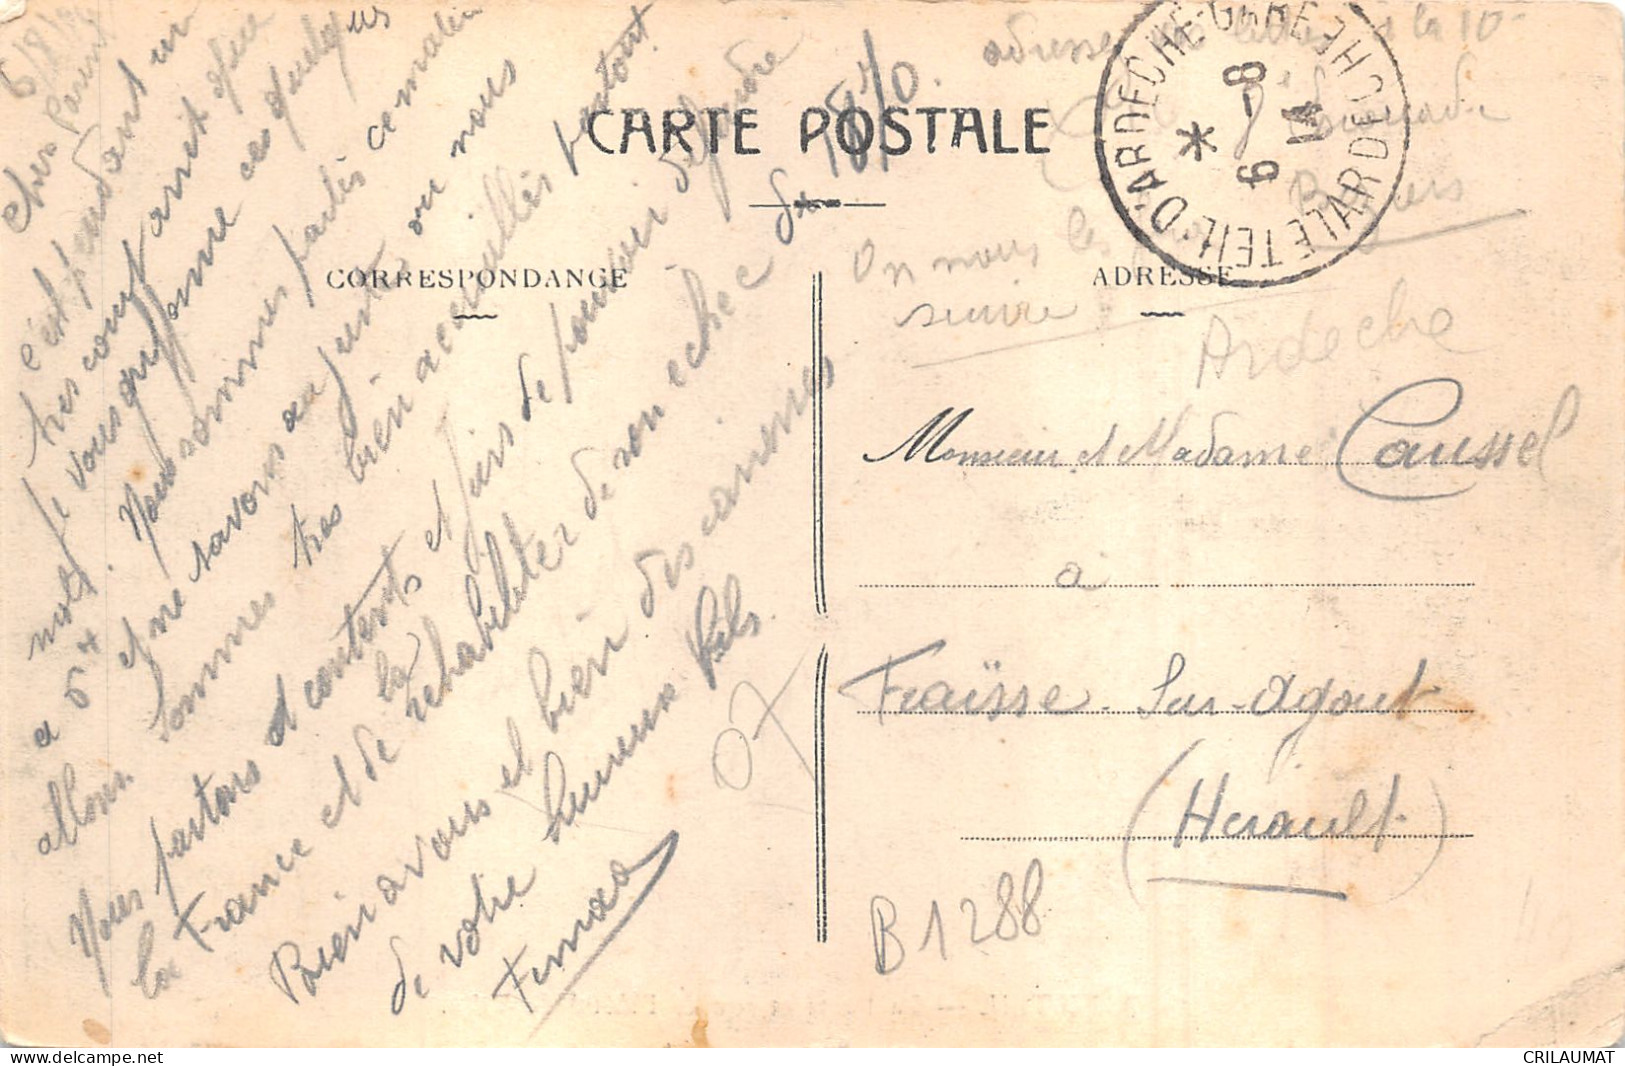 6/8/14
Chers Parents
c'est pendant un
tres court arret que
je vous griffonne ces quelques
mots. Nous sommes partis ce matin
a 6 H et ne savons au juste ou nous
allons. Sommes tres bien accueillis partout.
Nous partons et contents et fiers de pouvoir défendre
la France et de la réhabiliter de son echec de 1870.
Bien a vous et bien des caresses
de votre heureux fils.
Fernand
adresse lettres à la 10
Béziers
On nous les
suivre
CARTE POSTALE
CORRESPONDANCE
ADRESSE
LE TEIL-D'ARDECHE-GARE
ARDECHE
6 - 8
14
Ardeche
Monsieur et Madame Caussel
a
Fraïsse-Sur-Agout
(Herault)
07
B1288
CRILAUMAT